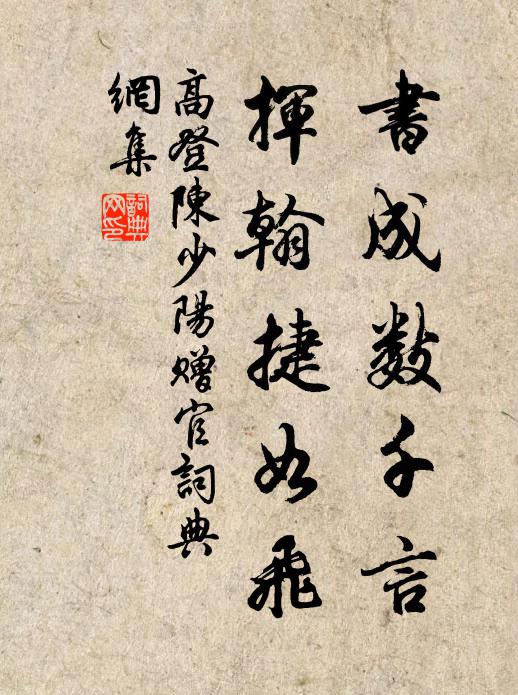 書成數千言
揮翰捷如飛
高登陳少陽贈官詞典
網集
詞典
网印